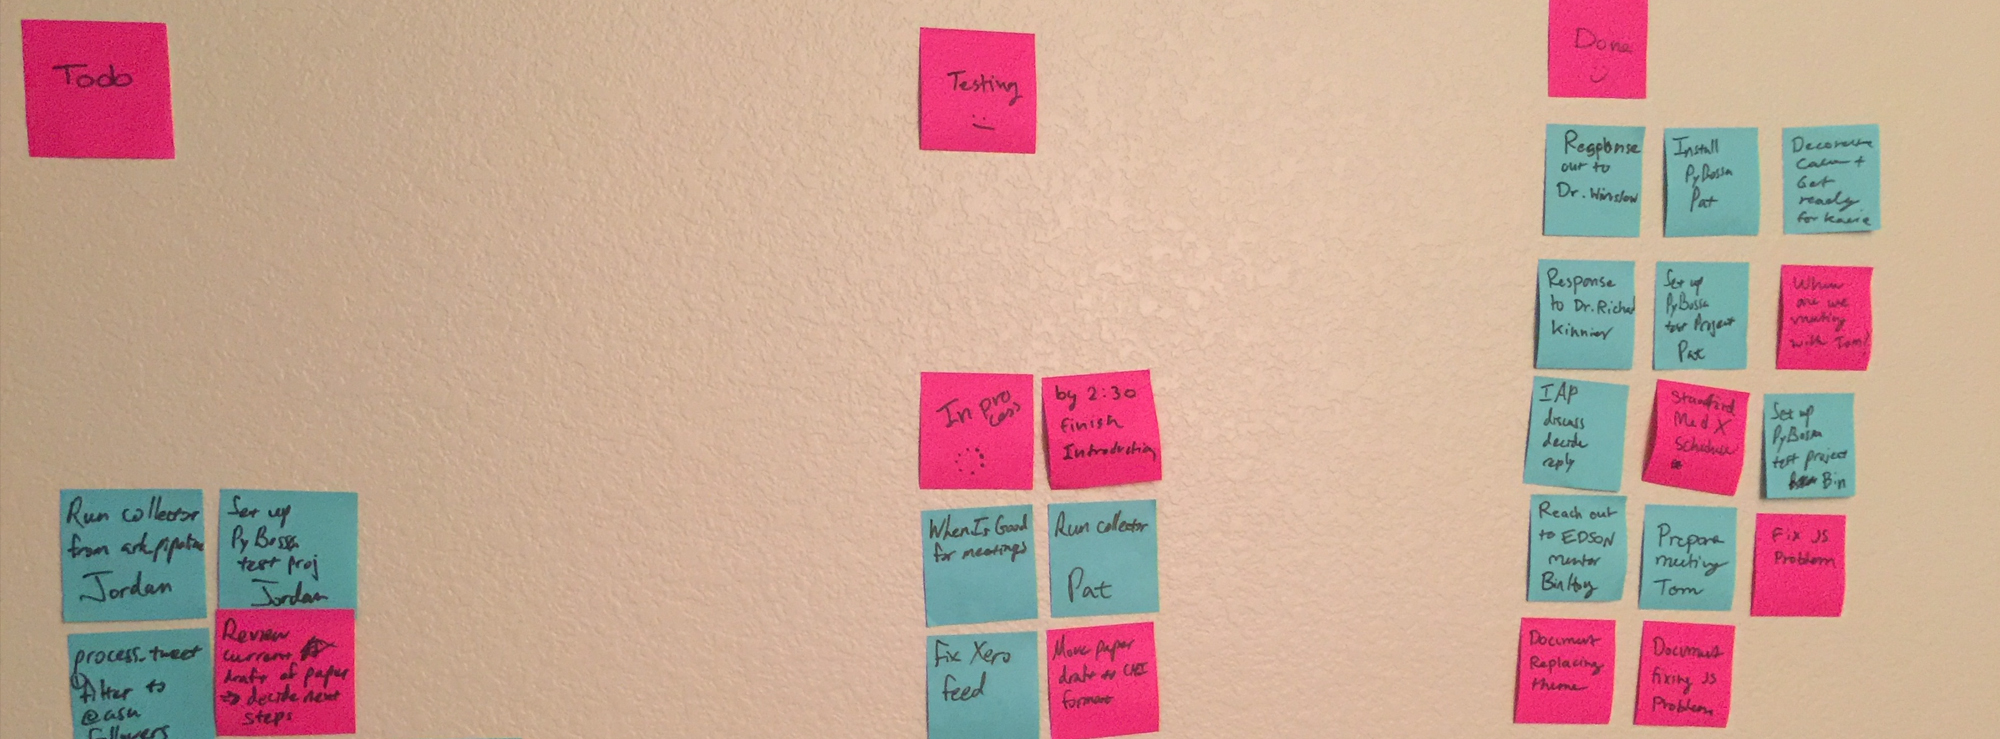 Todo
Run collector
from ark-pipeline
Jordan
Set up
PyBossa
test proj
Jordan
process-tweet
filter to
@asu
followers
Review
current
draft of paper
⇒ decide next
steps
Testing
In pro
cess
by 2:30
finish
Introduction
WhenIsGood
for meetings
Run collector
Pat
Fix Xero
feed
Move paper
draft to CHI
format
Done
Response
out to
Dr. Winslow
Install
PyBossa
Pat
Decorate
+
Get
ready
for
Response
to Dr. Richard
Kinnier
Set up
PyBossa
test Project
Pat
When
are we
meeting
with Tom?
IAP
discuss
decide
reply
Stanford
Med X
Schedule
Set up
PyBossa
test project
Bin
Reach out
to EDSON
mentor
Prepare
meeting
Tom
Fix JS
Problem
Document
Replacing
theme
Document
fixing JS
Problem